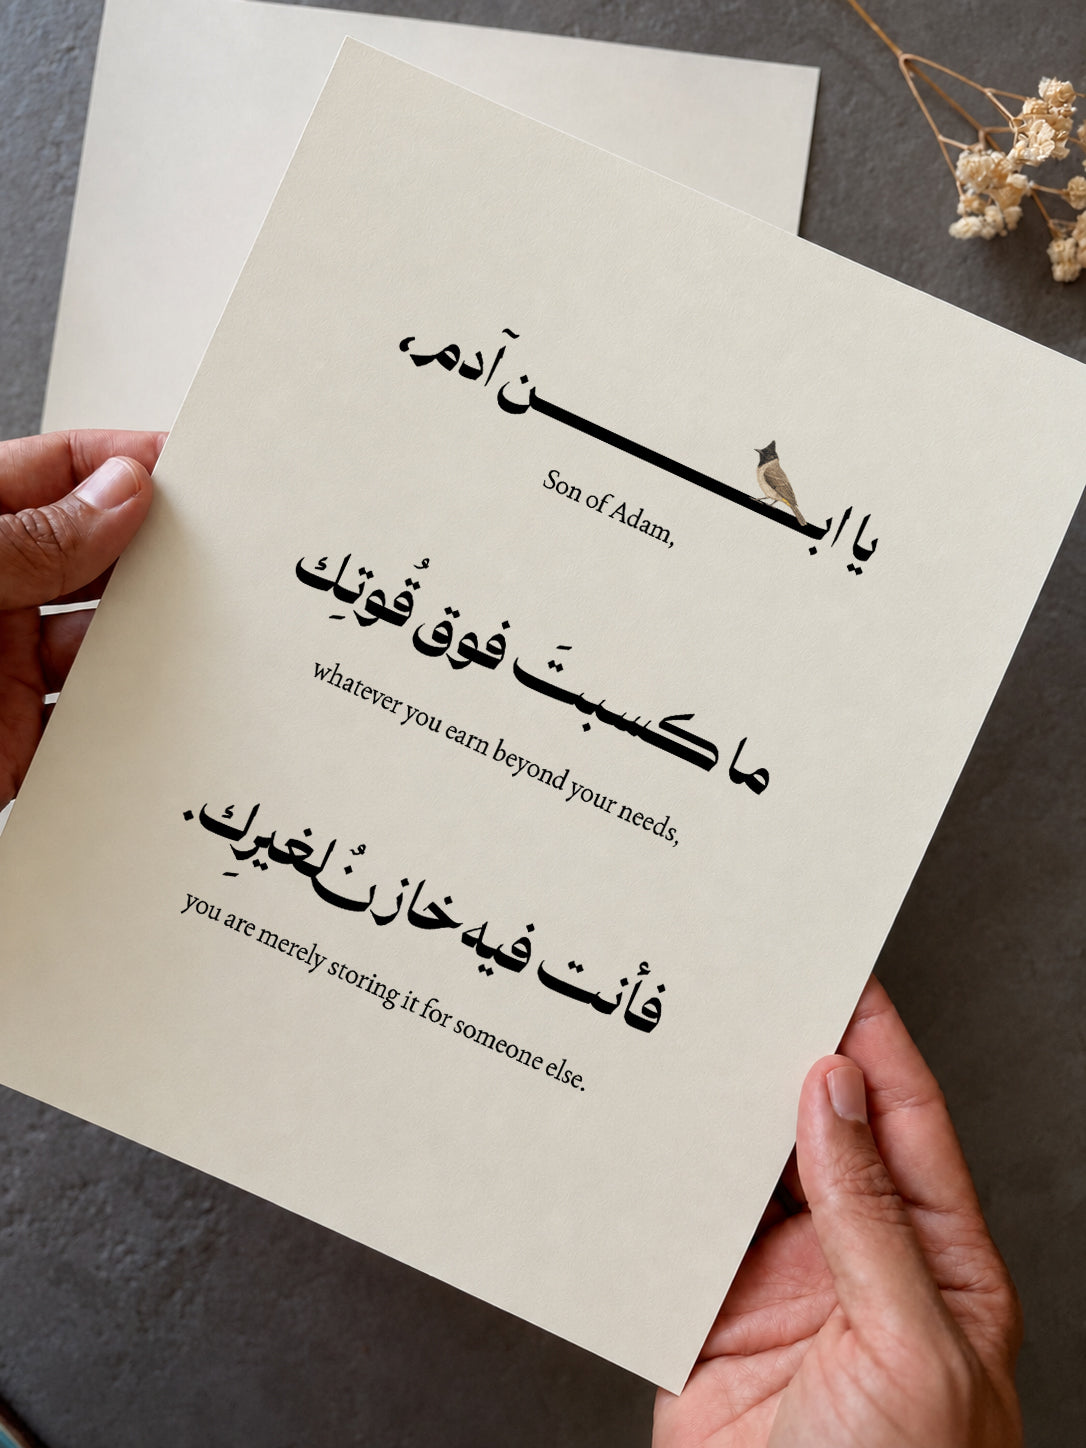 يا ابـــــن آدم،
Son of Adam,
ما كسبتَ فوق قُوتِك
whatever you earn beyond your needs,
فأنت فيه خازنٌ لغيرِك.
you are merely storing it for someone else.